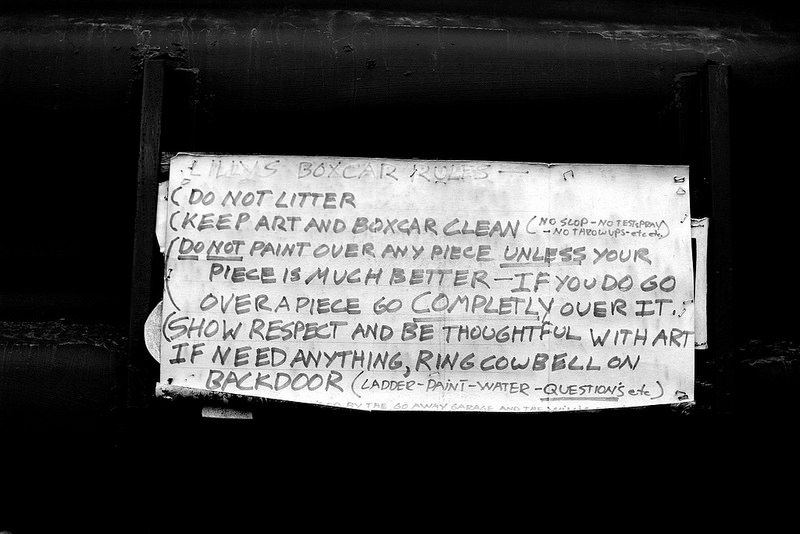 LILLY'S BOXCAR RULES —
( DO NOT LITTER
( KEEP ART AND BOXCAR CLEAN (NO SLOP - NO TESTSPRAY
- NO THROWUPS - etc etc)
( DO NOT PAINT OVER ANY PIECE UNLESS YOUR
PIECE IS MUCH BETTER — IF YOU DO GO
OVER A PIECE GO COMPLETLY OVER IT.
( SHOW RESPECT AND BE THOUGHTFUL WITH ART
IF NEED ANYTHING, RING COWBELL ON
BACKDOOR (LADDER - PAINT - WATER - QUESTION'S etc)
BY THE GO AWAY GARAGE AND THE